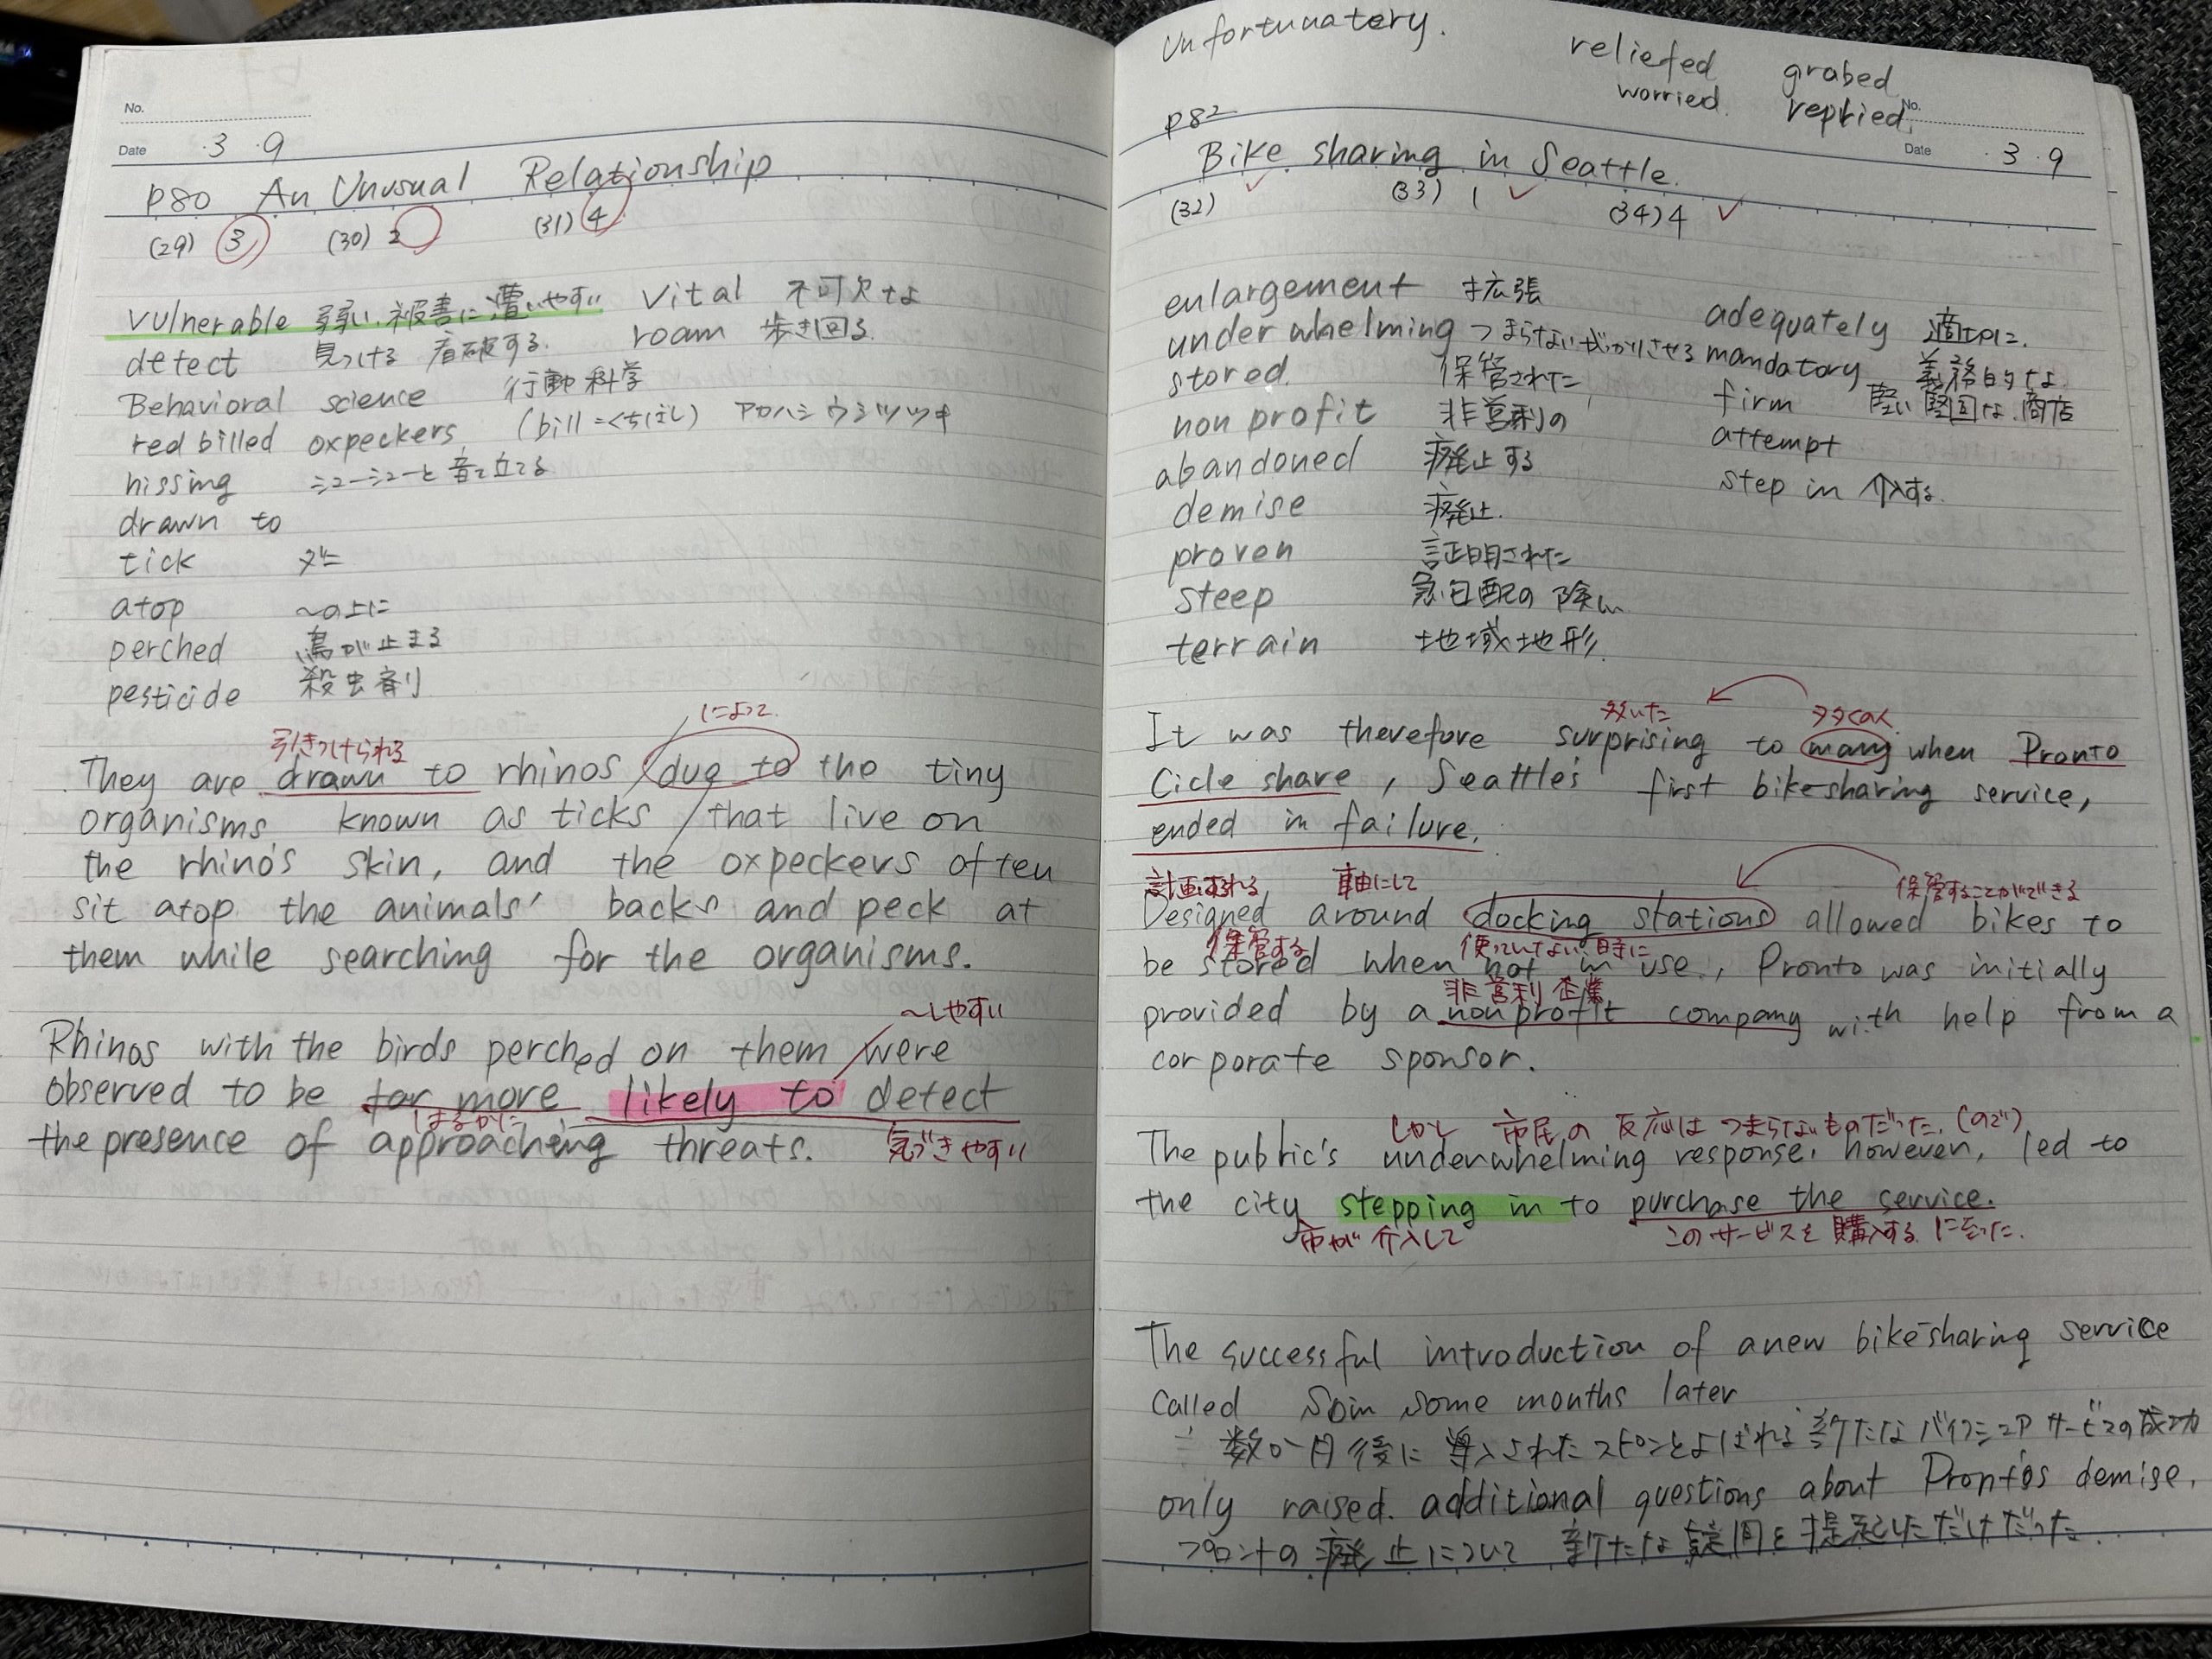 No.
Date 3・9
P80 An Unusual Relationship
(29) 3 (30) 2 (31) 4
vulnerable 弱い、被害に遭いやすい vital 不可欠な
detect 見つける 看破する. roam 歩き回る.
Behavioral science 行動科学
red billed oxpeckers (bill=くちばし) アカハシウシツツキ
hissing シューシューと音を立てる
drawn to
tick ダニ
atop 〜の上に
perched 鳥が止まる
pesticide 殺虫剤
引きつけられる によって
They are drawn to rhinos due to the tiny
organisms known as ticks that live on
the rhino's skin, and the oxpeckers often
sit atop the animals' backs and peck at
them while searching for the organisms.
〜しやすい
Rhinos with the birds perched on them were
observed to be far more likely to detect
はるかに
the presence of approaching threats. 気づきやすい
Unfortunatery.
reliefed grabed
worried replied.
No.
P82
Date 3・9
Bike sharing in Seattle.
(32) (33) 1 (34) 4
enlargement 拡張
underwhelming つまらない がっかりさせる
stored. 保管された
non profit 非営利の
abandoned 廃止する
demise 廃止.
proven 証明された
steep 急勾配の 険しい
terrain 地域地形.
adequately 適切に.
mandatory 義務的な
firm 堅い 堅固な.商店
attempt
step in 介入する.
驚いた 多くの人
It was therefore surprising to many when Pronto
Cicle share, Seattle's first bikesharing service,
ended in failure.
計画される 軸にして 保管することができる
Designed around docking stations allowed bikes to
保管する 使っていない時に
be stored when not in use, Pronto was initially
非営利企業
provided by a nonprofit company with help from a
corporate sponsor.
しかし 市民の反応はつまらないものだった.(ので)
The public's underwhelming response, however, led to
the city stepping in to purchase the service.
市が介入して このサービスを購入するに至った.
The successful introduction of a new bike-sharing service
called Spin some months later
数か月後に導入されたスピンとよばれる新たなバイクシェアサービスの成功
only raised additional questions about Pronto's demise.
プロントの廃止について 新たな疑問を提起しただけだった.